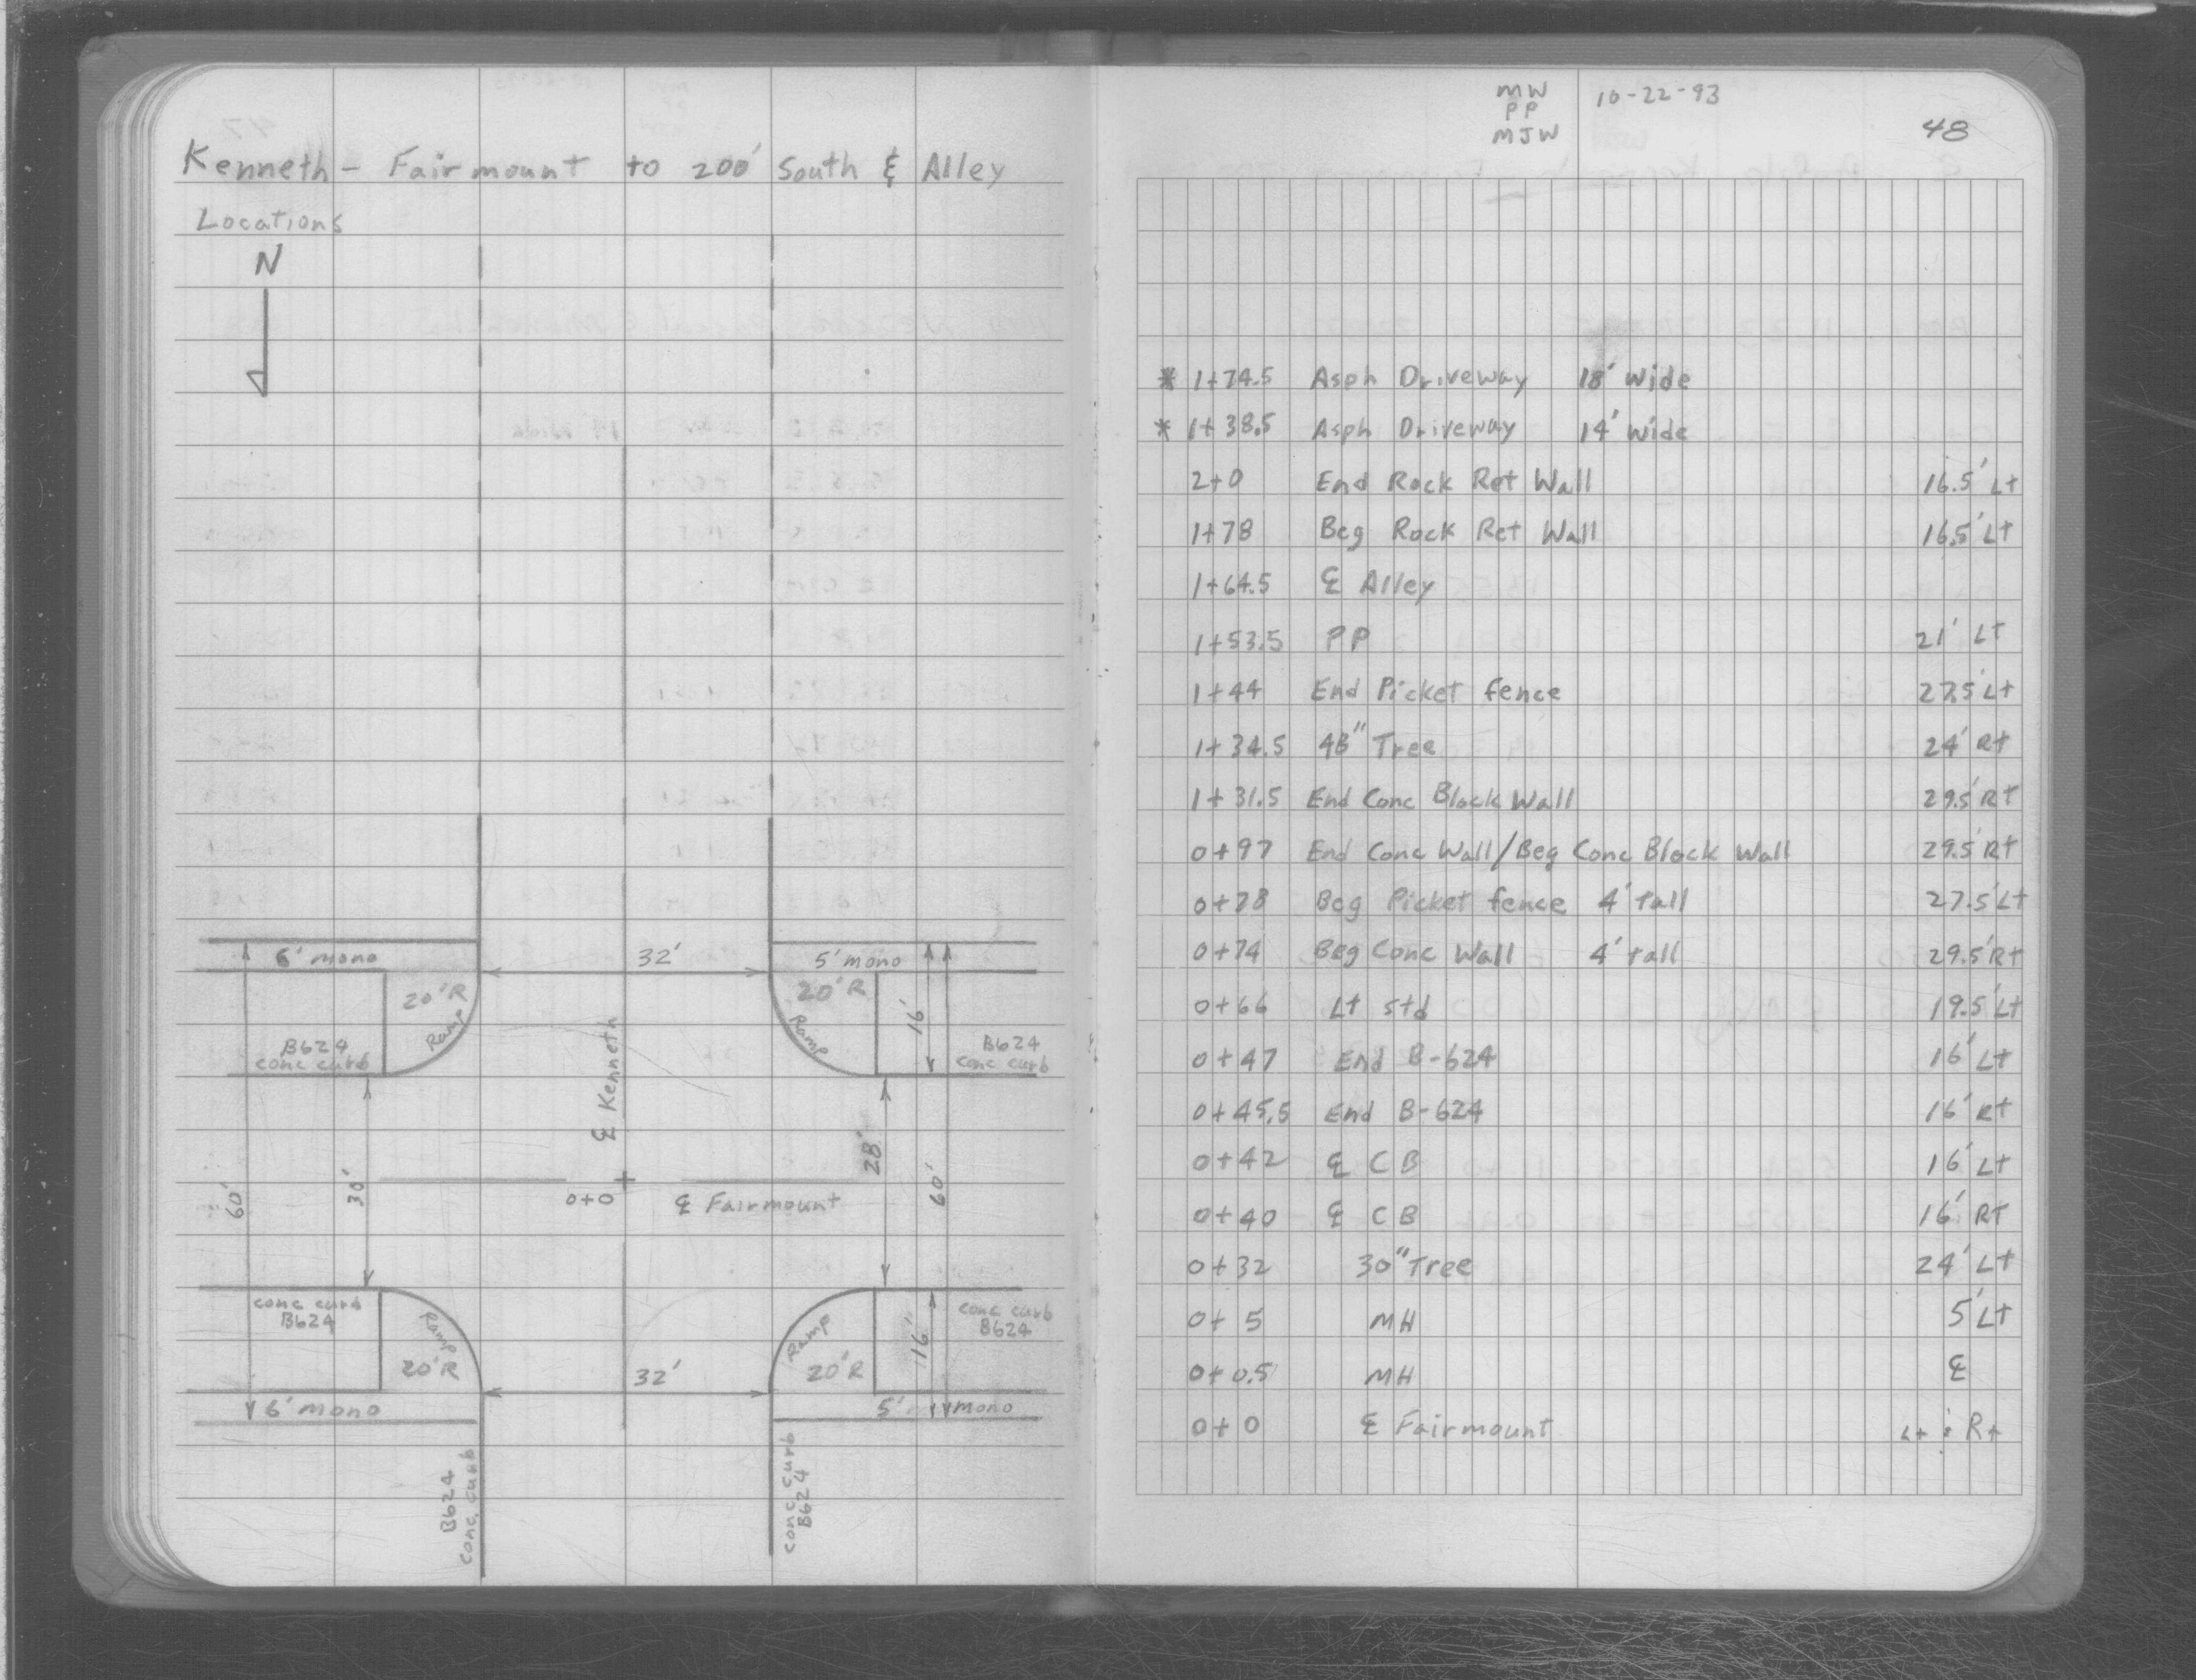 Kenneth - Fairmount to 200' South & Alley
Locations
N
6' mono
32'
5' mono
20'R
20'R
Ramp
Ramp
16'
B624
conc curb
B624
conc curb
℄ Kenneth
60'
30'
28'
60'
0+0
℄ Fairmount
conc curb
B624
Ramp
20'R
32'
Ramp
20'R
16'
conc curb
B624
6' mono
5' mono
B624
conc. curb
conc curb
B624
MW
PP
MJW
10-22-93
48
* 1+74.5 Asph Driveway 18' wide
* 1+38.5 Asph Driveway 14' wide
2+0 End Rock Ret Wall 16.5' Lt
1+78 Beg Rock Ret Wall 16.5' Lt
1+64.5 ℄ Alley
1+53.5 PP 21' Lt
1+44 End Picket fence 27.5' Lt
1+34.5 48" Tree 24' Rt
1+31.5 End Conc Block Wall 29.5' Rt
0+97 End Conc Wall/Beg Conc Block Wall 29.5' Rt
0+78 Beg Picket fence 4' tall 27.5' Lt
0+74 Beg Conc Wall 4' tall 29.5' Rt
0+66 Lt Std 19.5' Lt
0+47 End B-624 16' Lt
0+45.5 End B-624 16' Rt
0+42 ℄ CB 16' Lt
0+40 ℄ CB 16' RT
0+32 30" Tree 24' Lt
0+5 MH 5' Lt
0+0.5 MH ℄
0+0 ℄ Fairmount Lt : Rt